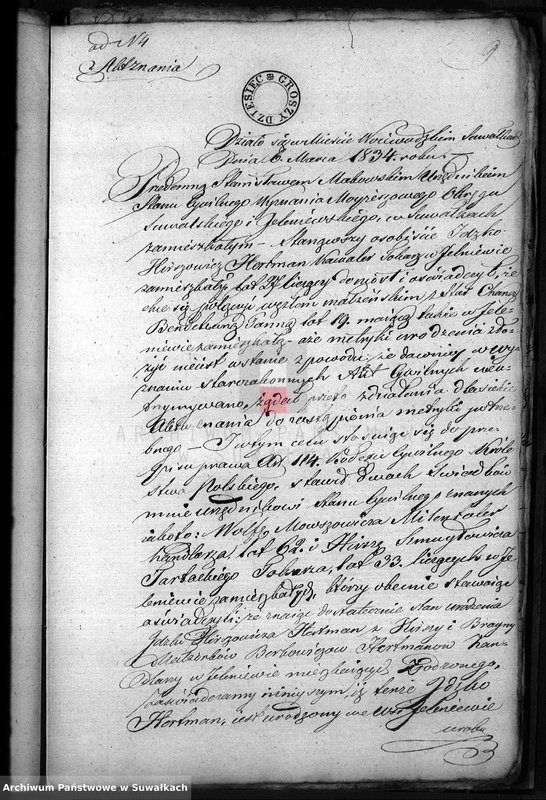 ad N 4
Akt znania
9
DZIESIĘĆ GROSZY
Działo się w Mieście Woiewódzkim Suwałkach
Dnia 6. Marca 1834. roku.
Przedemną Stanisławem Makowskim Urzędnikiem
Stanu Cywilnego Wyznania Moyżeszowego Okręgu
Suwalskiego i Jeleniewskiego, w Suwałkach
zamieszkałym – Stanąwszy osobiście Idzko
Hirszowicz Hertman Kawaler Tokarz w Jeleniewie
zamieszkały, lat 37 liczący doniósł i oświadczył, że
chce się połączyć węzłem małżeńskim z Chaną
Bendetówną Panną lat 19. maiącą także w Jele-
niewie zamieszkałą – a że metryki urodzenia zło-
żyć nieiest w stanie z powodu, że dawniey w Wy-
znaniu Starozakonnych Akt Cywilnych nieu-
trzymywano, żądał przeto zdziałania dla siebie
Aktu znania do zastąpienia metryki potrze-
bnego – W tym celu stosuiąc się do prze-
pisu prawa Art 114. Kodexu Cywilnego Króle-
stwa Polskiego, stawił dwóch Świadków
mnie urzędnikowi Stanu Cywilnego znanych
iakoto: Wolfa Mowszowicza Milentaler
handlarza, lat 62. i Hirsza Szmuyłowicza
Tartackiego Tokarza, lat 33. liczących w Je-
leniewie zamieszkałych, którzy obecnie stawaiąc
oświadczyli: że znaiąc dostatecznie stan urodzenia
Idzki Hirszowicza Hertman z Hirszy i Brayny
Małżonków Berkowiczów Hertmanów han-
dlarzy w Jeleniewie mieszkaiących zrodzonego,
zaświadczamy ninieyszym, iż tenże Idzko
Hertman, iest urodzony we Wsi Jeleniewie
w roku
Archiwum Państwowe w Suwałkach